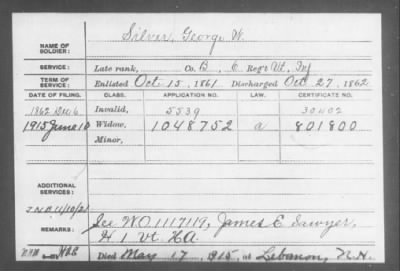 Silver, George W.
NAME OF SOLDIER:
SERVICE: Late rank, Co. B, 6 Reg't Vt. Inf
TERM OF SERVICE: Enlisted Oct. 15, 1861 Discharged Oct 27, 1862
DATE OF FILING. CLASS. APPLICATION NO. LAW. CERTIFICATE NO.
1862 Dec 6 Invalid, 5539 30402
1915 June 10 Widow, 1048752 a 801800
Minor,
ADDITIONAL SERVICES:
REMARKS: See WO 1117119, James E. Sawyer,
H. 1 Vt. HA.
Died May 17, 1915, at Lebanon, N.H.